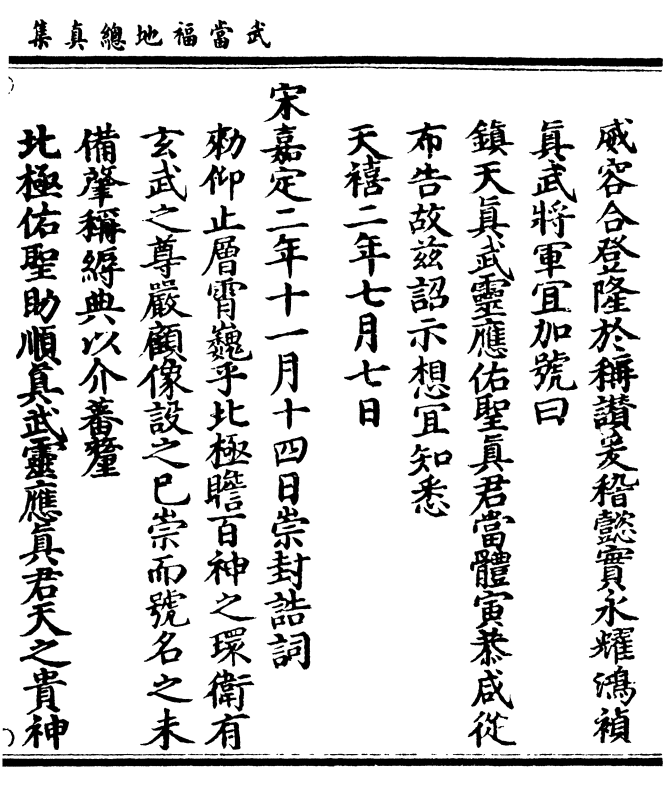 武當福地總真集
威容合登隆於稱讃爰稽懿實永耀鴻禎
真武將軍宜加號曰
鎮天真武靈應佑聖真君當體寅恭咸從
布告故茲詔示想宜知悉
天禧二年七月七日
宋嘉定二年十一月十四日崇封誥詞
勑仰止層霄巍乎北極瞻百神之環衛有
玄武之尊嚴顧像設之已崇而號名之未
備肇稱縟典以介蕃釐
北極佑聖助順真武靈應真君天之貴神